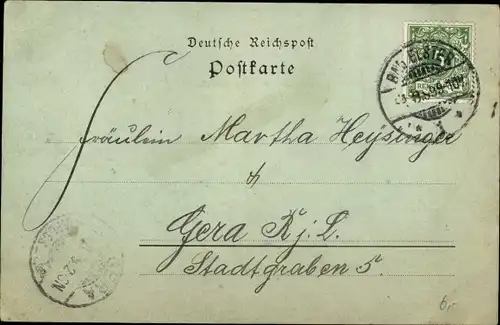 Deutsche Reichspost
Postkarte
BAD ELSTER
Fräulein Martha Heysinger
Gera Rj. L.
Stadtgraben 5.
GERA
6,-